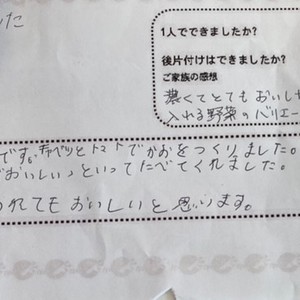 した
1人でできましたか?
後片付けはできましたか?
ご家族の感想
濃くてとてもおいし
入れる野菜のバリエー
です。キャベツとトマトでかおをつくりました。
おいしい」といってたべてくれました。
れてもおいしいと思います。